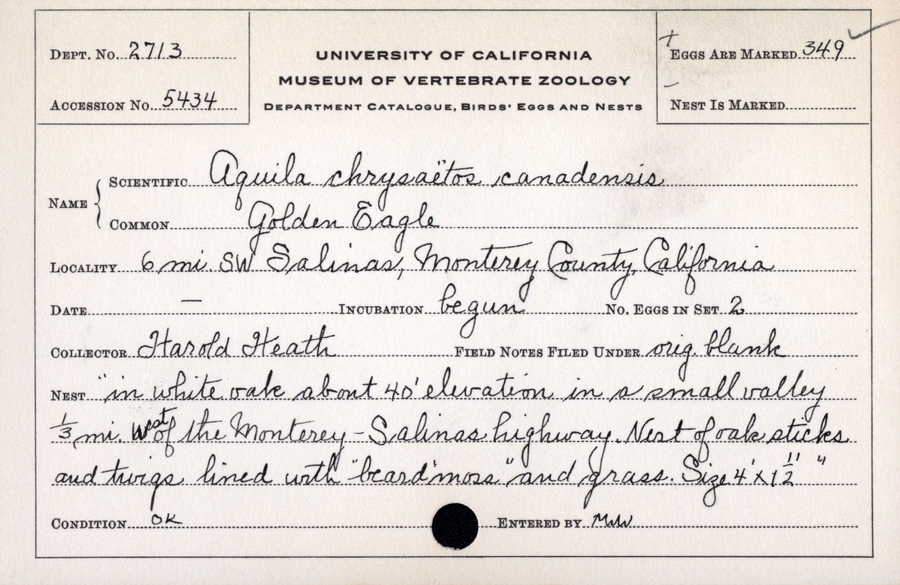 Dept. No. 2713
Accession No. 5434
UNIVERSITY OF CALIFORNIA
MUSEUM OF VERTEBRATE ZOOLOGY
Department Catalogue, Birds' Eggs and Nests
+ Eggs Are Marked 349 ✓
- Nest Is Marked
Name { Scientific Aquila chrysaëtos canadensis
Common Golden Eagle
Locality 6 mi. SW Salinas, Monterey County, California
Date — Incubation begun No. Eggs in Set 2
Collector Harold Heath Field Notes Filed Under orig. blank
Nest "in white oak about 40' elevation in a small valley
1/3 mi. West of the Monterey-Salinas highway. Nest of oak sticks
and twigs lined with "beard moss" and grass. Size 4' x 1 1/2' "
Condition OK Entered by MWW